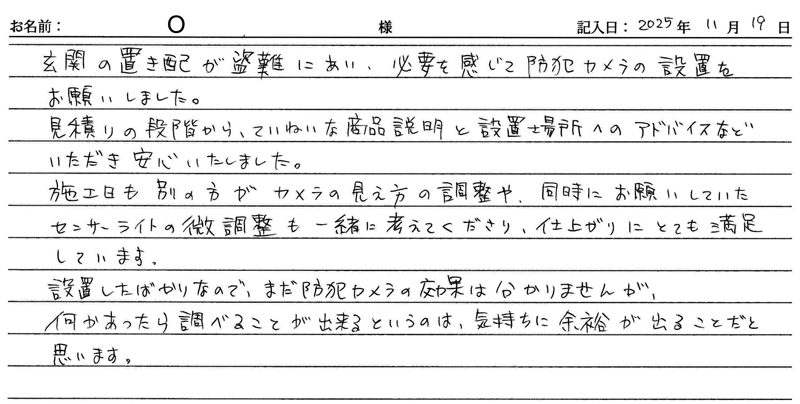 お名前： O 様 記入日： 2025 年 11 月 19 日
玄関の置き配が盗難にあい、必要を感じて防犯カメラの設置を
お願いしました。
見積りの段階から、ていねいな商品説明と設置場所へのアドバイスなど
いただき安心いたしました。
施工日も別の方がカメラの見え方の調整や、同時にお願いしていた
センサーライトの微調整も一緒に考えてくださり、仕上がりにとても満足
しています。
設置したばかりなので、まだ防犯カメラの効果は分かりませんが、
何かあったら調べることが出来るというのは、気持ちに余裕が出ることだと
思います。